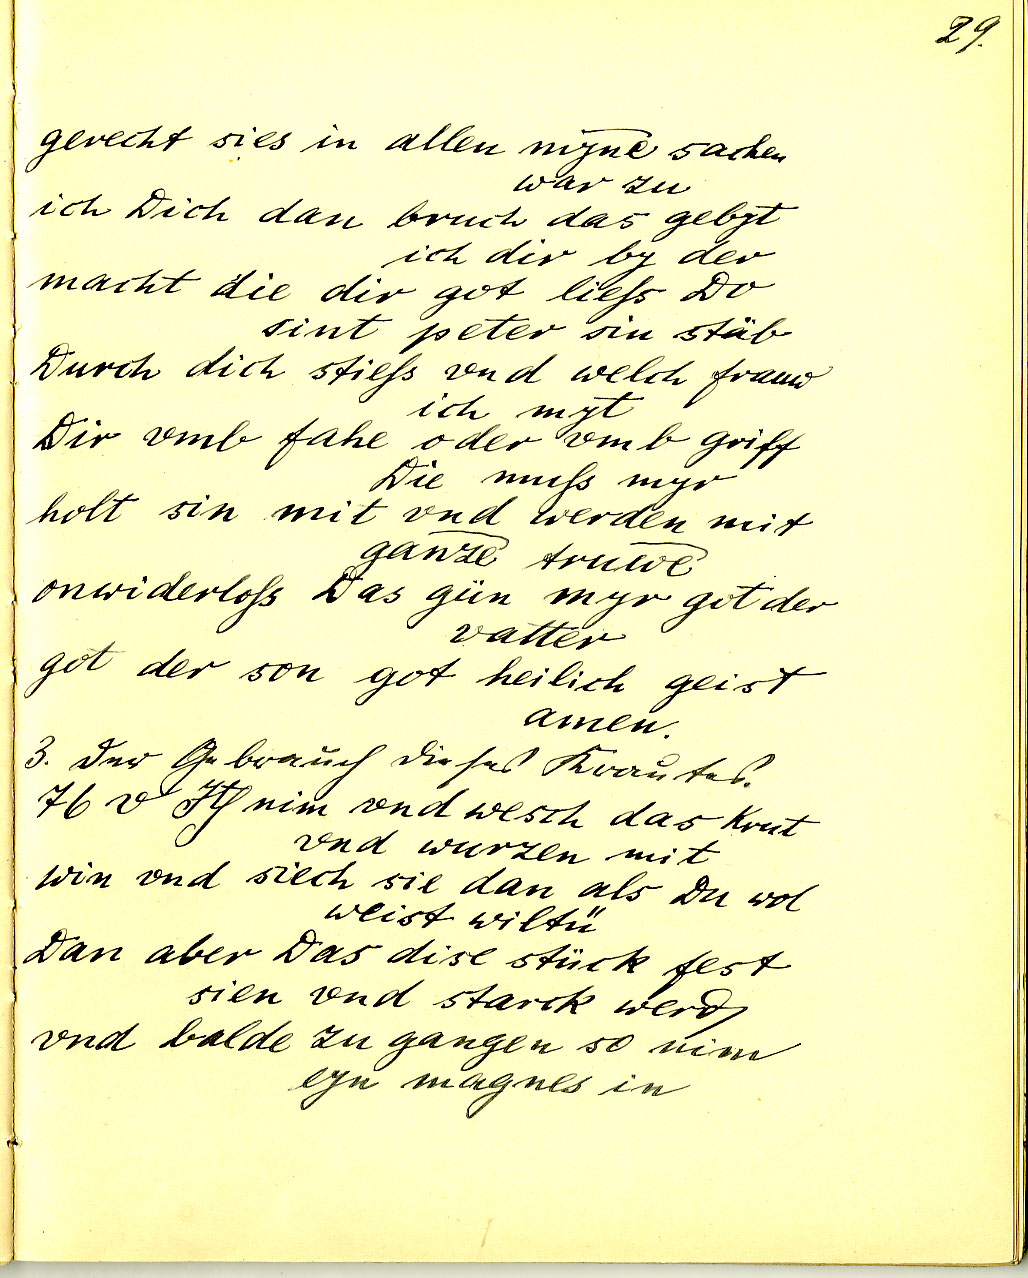 29.
gerecht sies in allen myne̅ sachen
war zu
ich Dich dan bruch das gebyt
ich dir by der
macht die dir got liess Do
sint peter sin stäb
Durch dich stiess vnd welch frauw
ich myt
Dir vmb fahe oder vmb griff
Die muss myr
holt sin mit vnd werden mit
ganze̅ truwe̅
onwiderloss Das gün myr got der
vatter
got der son got heilich geist
amen.
3. Der Gebrauch dieses Krautes.
76 v nim vnd wesch das Krut
vnd wurzen mit
win vnd siech sie dan als Du wol
weist wiltü
Dan aber Das dise stück fest
sien vnd starck werd
vnd balde zu gangen so nim
eyn magnes in